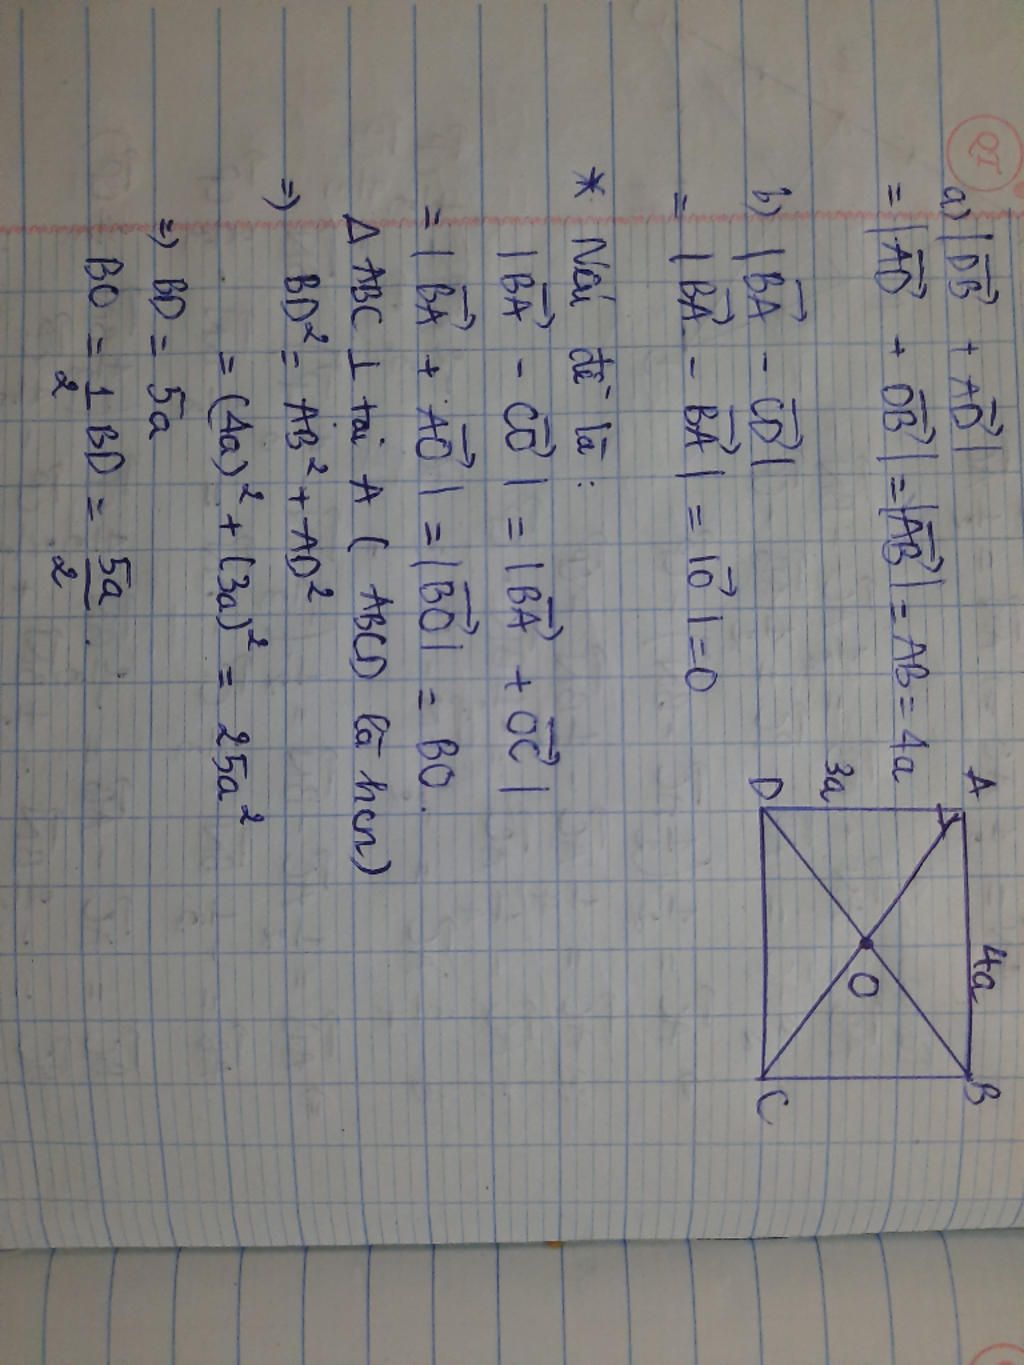 a) |DB⃗ + AD⃗|
= |AD⃗ + DB⃗| = |AB⃗| = AB = 4a
b) |BA⃗ - CD⃗|
= |BA⃗ - BA⃗| = |0⃗| = 0
* Nếu đề là:
|BA⃗ - CO⃗| = |BA⃗ + OC⃗|
= |BA⃗ + AO⃗| = |BO⃗| = BO.
Δ ABC ⊥ tại A ( ABCD là hcn)
=) BD² = AB² + AD²
= (4a)² + (3a)² = 25a²
=) BD = 5a
BO = 1/2 BD = 5a/2 .
A
4a
B
3a
O
D
C